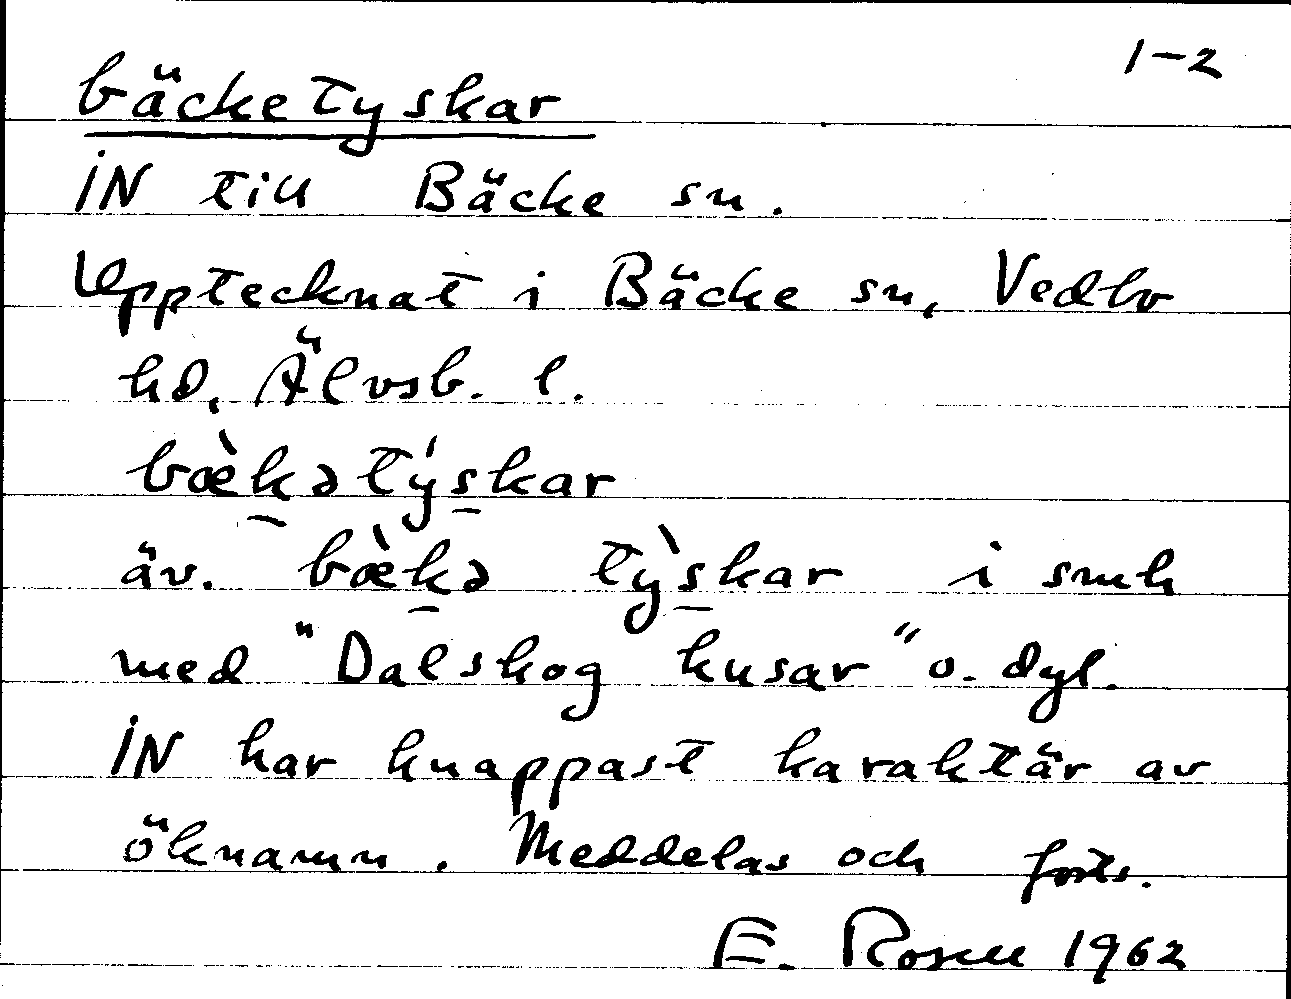 1-2
bäcketyskar
IN till Bäcke sn.
Upptecknat i Bäcke sn, Vedbo
hd, Älvsb. l.
bæ̀kətý̀skar
äv. bæ̀kə tỳskar i smh
med "Dalskog kusar" o. dyl.
IN har knappast karaktär av
öknamn. Meddelas och forts.
E. Rosell 1962